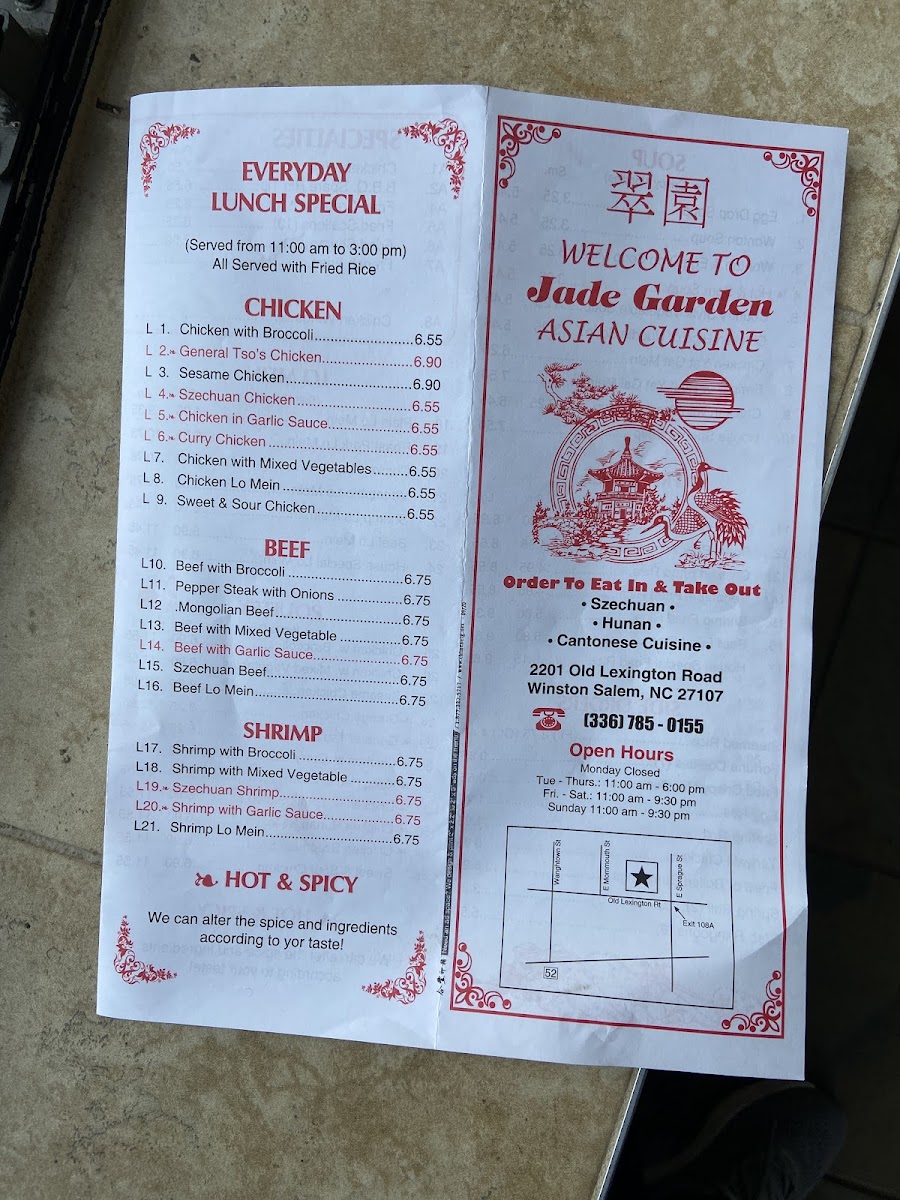 EVERYDAY
LUNCH SPECIAL
(Served from 11:00 am to 3:00 pm)
All Served with Fried Rice
CHICKEN
L 1. Chicken with Broccoli.......................6.55
L 2. General Tso's Chicken.....................6.90
L 3. Sesame Chicken..............................6.90
L 4. Szechuan Chicken...........................6.55
L 5. Chicken in Garlic Sauce....................6.55
L 6. Curry Chicken.................................6.55
L7. Chicken with Mixed Vegetables.........6.55
L8. Chicken Lo Mein..............................6.55
L 9. Sweet & Sour Chicken......................6.55
BEEF
L10. Beef with Broccoli...........................6.75
L11. Pepper Steak with Onions................6.75
L12 .Mongolian Beef..............................6.75
L13. Beef with Mixed Vegetable...............6.75
L14. Beef with Garlic Sauce.....................6.75
L15. Szechuan Beef................................6.75
L16. Beef Lo Mein..................................6.75
SHRIMP
L17. Shrimp with Broccoli........................6.75
L18. Shrimp with Mixed Vegetable...........6.75
L19. Szechuan Shrimp............................6.75
L20. Shrimp with Garlic Sauce.................6.75
L21. Shrimp Lo Mein..............................6.75
HOT & SPICY
We can alter the spice and ingredients
according to yor taste!
翠園
WELCOME TO
Jade Garden
ASIAN CUISINE
Order To Eat In & Take Out
• Szechuan •
• Hunan •
• Cantonese Cuisine •
2201 Old Lexington Road
Winston Salem, NC 27107
(336) 785 - 0155
Open Hours
Monday Closed
Tue - Thurs.: 11:00 am - 6:00 pm
Fri. - Sat.: 11:00 am - 9:30 pm
Sunday 11:00 am - 9:30 pm
Waughtown St
E Mommouth St
E Sprague St
Old Lexington Rt
Exit 108A
52